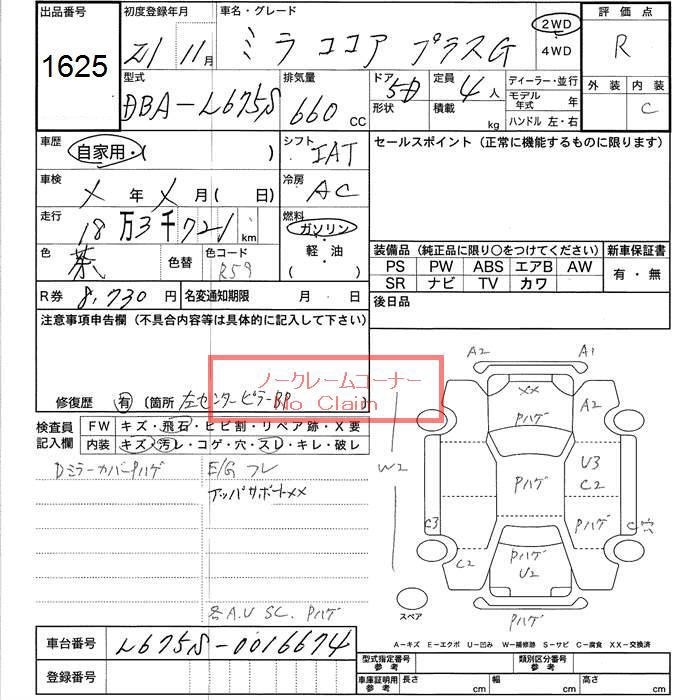 出品番号 初度登録年月 車名・グレード 2WD 評価点
1625 21 11月 ミラココア プラスG 4WD R
型式 排気量 ドア 定員 ディーラー・並行 外装 内装
DBA-L675S 660 CC 5D 形状 4人 積載 kg モデル年式 年 ハンドル 左・右 C
車歴 自家用・( ) シフト IAT セールスポイント (正常に機能するものに限ります)
車検 X年X月( 日) 冷房 AC
走行 18万3千721km 燃料 ガソリン
色 茶 色替 色コード R59 軽・油 ( ) 装備品 (純正品に限り○をつけてください) 新車保証書
PS PW ABS エアB AW 有・無
SR ナビ TV カワ
R券 8,730円 名変通知期限 月 日 後日品
注意事項申告欄 (不具合内容等は具体的に記入して下さい)
ノークレームコーナー
No Claim
修復歴 有 〔箇所 左センターピラーBP 〕
検査員記入欄 FW キズ・飛石・ヒビ割・リペア跡・X要
内装 キズ・汚レ・コゲ・穴・スレ・キレ・破レ
Dミラーカバーハゲ E/G フレ
アッパサポートXX
各A.U SC. Pハゲ
A2 A1
XX
Pハゲ A2
W2 Pハゲ U3
C2
C3 Pハゲ C穴
C2 Pハゲ
U2
スペア Pハゲ
A-キズ E-エクボ U-凹み W-補修跡 S-サビ C-腐食 XX-交換済
車台番号 L675S-0016674
登録番号
型式指定番号 参考 類別区分番号 参考
車庫証明用 参考 長さ cm 幅 cm 高さ cm